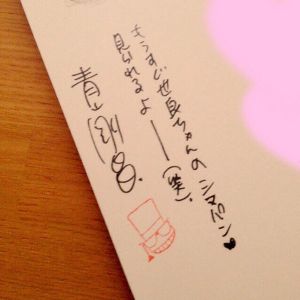 もうすぐ世良ちゃんのシマパン♥
見られるよー(笑).
青山剛昌.